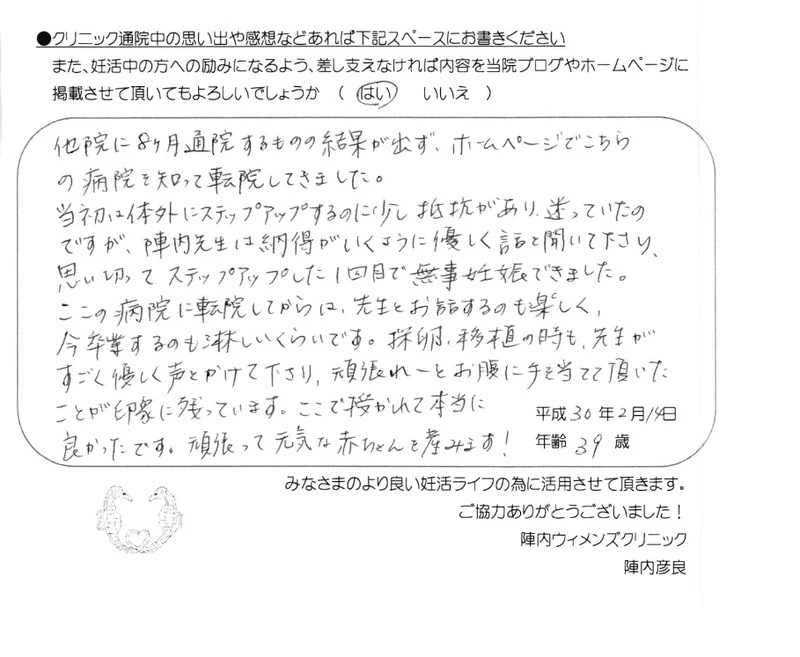 ●クリニック通院中の思い出や感想などあれば下記スペースにお書きください
また、妊活中の方への励みになるよう、差し支えなければ内容を当院ブログやホームページに
掲載させて頂いてもよろしいでしょうか （ はい いいえ ）
他院に8ヶ月通院するものの結果が出ず、ホームページでこちら
の病院を知って転院してきました。
当初は体外にステップアップするのに少し抵抗があり、迷っていたの
ですが、陣内先生は納得がいくように優しく話を聞いて下さり、
思い切ってステップアップした1回目で無事妊娠できました。
ここの病院に転院してからは、先生とお話するのも楽しく、
今卒業するのも淋しいくらいです。採卵、移植の時も、先生が
すごく優しく声をかけて下さり、頑張れーとお腹に手を当てて頂いた
ことが印象に残っています。ここで授かれて本当に
良かったです。頑張って元気な赤ちゃんを産みます!
平成30年2月14日
年齢 39 歳
みなさまのより良い妊活ライフの為に活用させて頂きます。
ご協力ありがとうございました！
陣内ウィメンズクリニック
陣内彦良